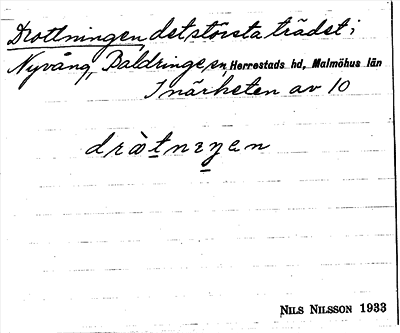 Drottningen, det största trädet i
Nyvång, Baldringe sn, Herrestads hd, Malmöhus län
I närheten av 10
dràtnɪŋen
NILS NILSSON 1933